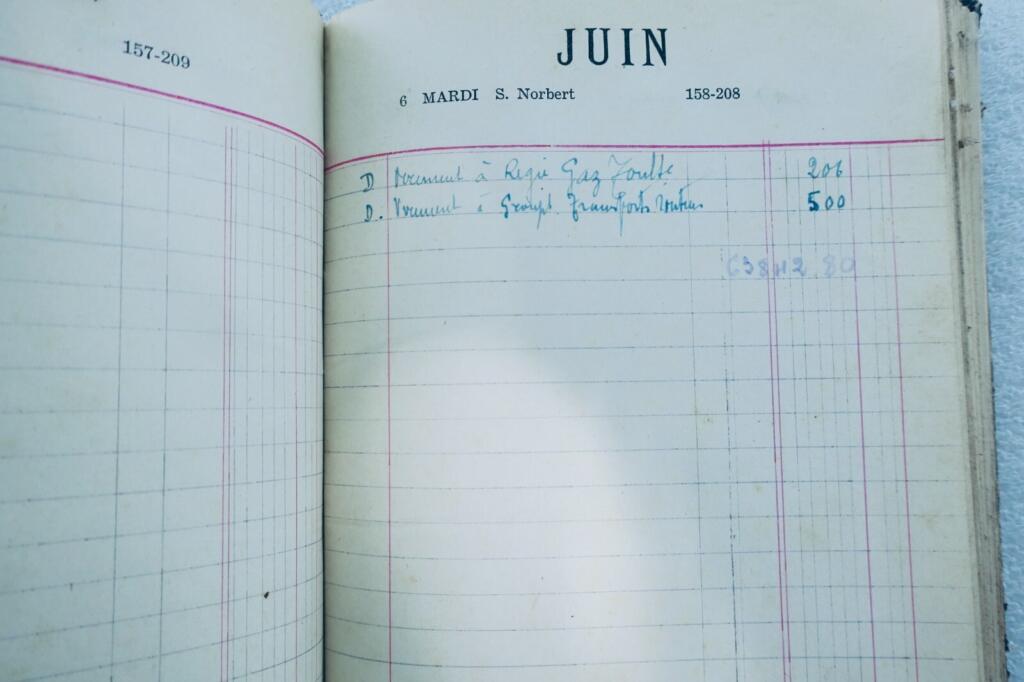 157-209
JUIN
6 MARDI S. Norbert 158-208
D Virement à Régie Gaz 206
D. Virement à Groupt Transports routiers 500
63842 80